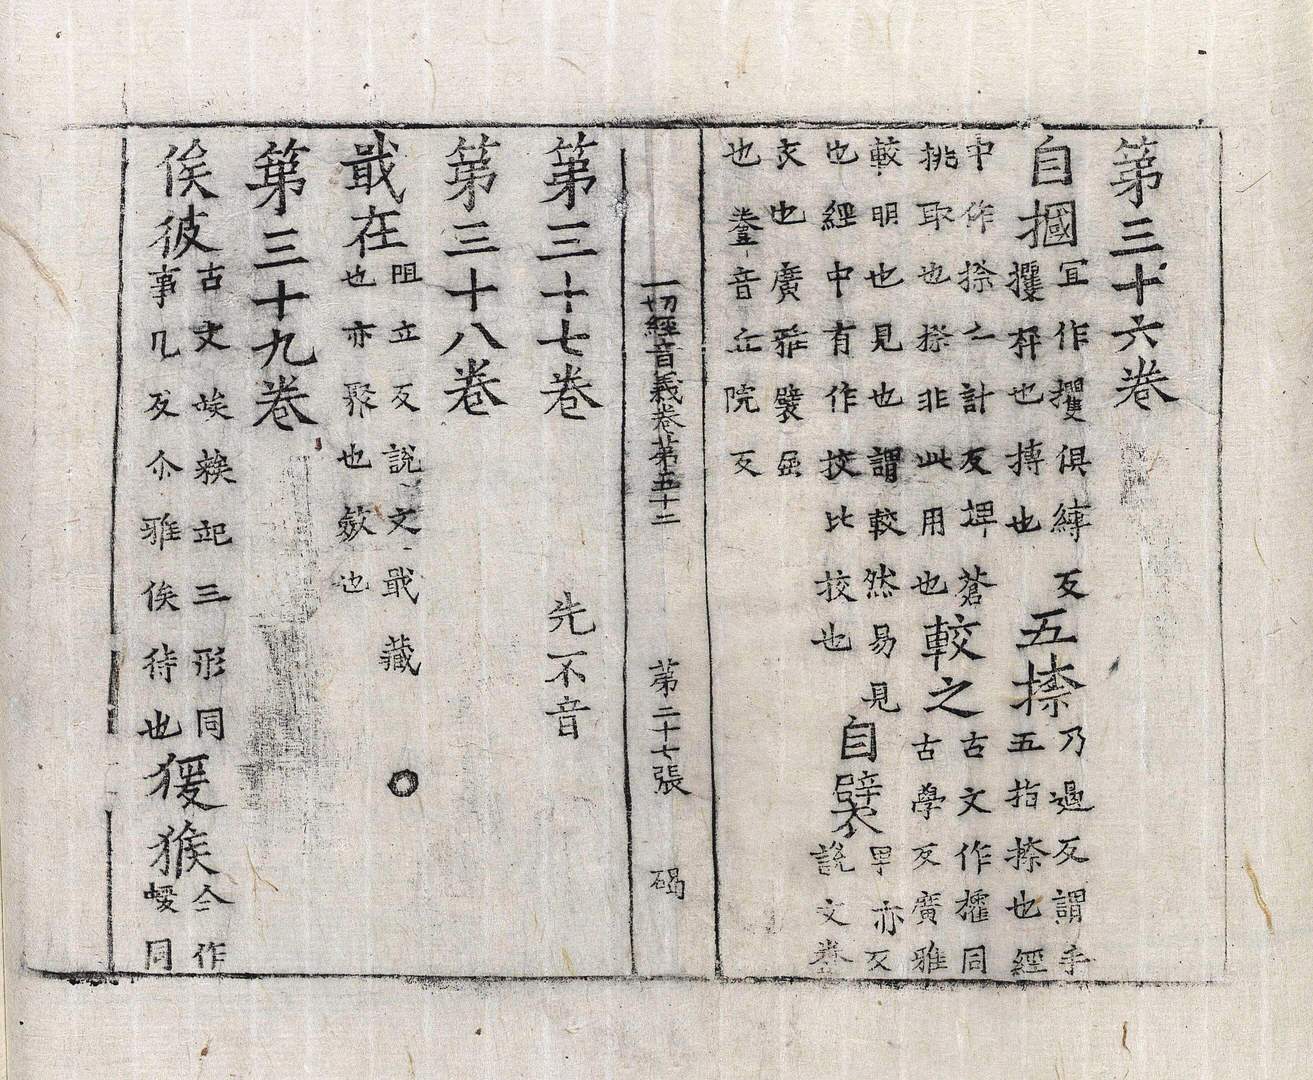 第三十六卷
自摑宜作攫俱縛反
攫枰也摶也
五捺乃遏反謂手
五指捺也經
中作捺之計反埤蒼
挑取也捺非此用也
較之古文作㩴同
古學反廣雅
較明也見也謂較然易見
也經中有作挍比挍也
自襞卑亦反
說文𢍏
衣也廣雅襞屈
也𢍏音丘院反
一切經音義卷第五十二 第二十七張 碣
第三十七卷 先不音
第三十八卷
戢在阻立反說文戢藏
也亦聚也斂也
第三十九卷
俟彼古文竢𥏳䇃三形同
事几反尒雅俟待也
猨猴仝作
蝯同